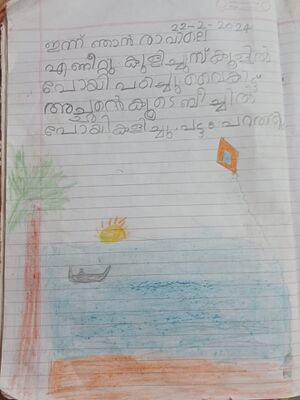 22-2-2024
ഇന്ന് ഞാൻ രാവിലെ
എണീറ്റു കുളിച്ചു സ്കൂളിൽ
പോയി പഠിച്ചു വൈകിട്ട്
അച്ഛന്റെ കൂടെ ബീച്ചിൽ
പോയി കളിച്ചു. പട്ടം പറത്തി